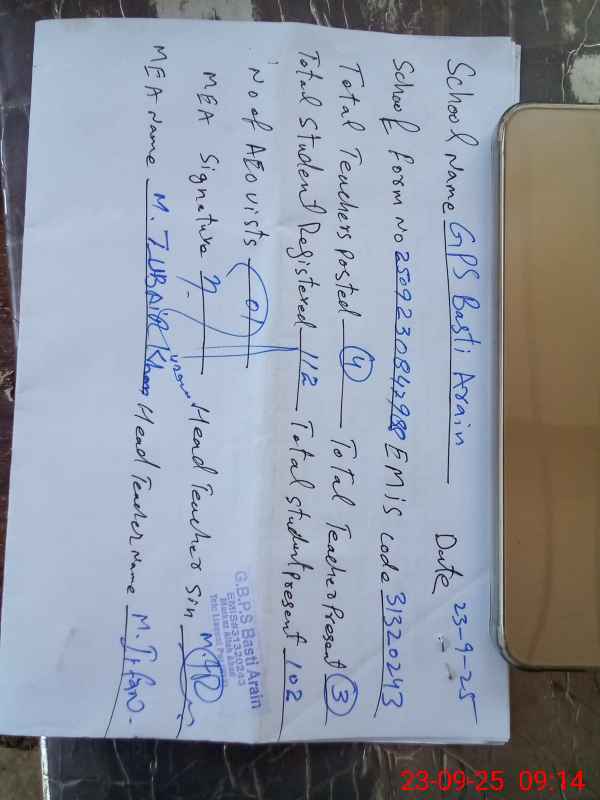 School Name GPS Basti Arain Date 23-9-25
School form No 2509230842980 EMIS code 31320243
Total Teachers Posted 4 Total Teacher Present 3
Total Student Registered 112 Total Student Present 102
No of AEO vists 01
MEA Signature Head Teacher Sin
MEA Name M. ZUBAIR Khan Head Teacher Name M. Irfan.
G.B.P.S Basti Arain
EMIS#31320243
23-09-25 09:14